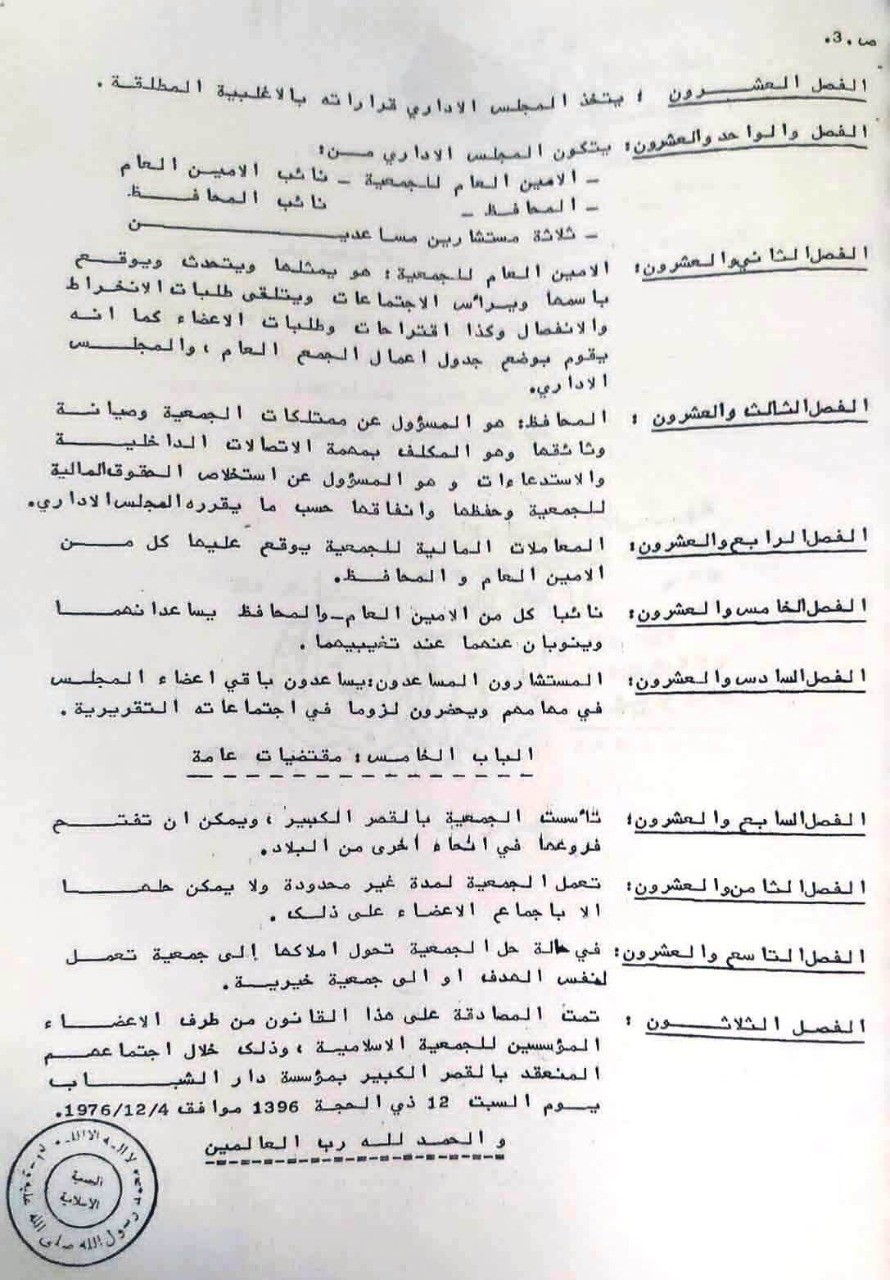 ص.3.
الفصل العشرون : يتخذ المجلس الاداري قراراته بالاغلبية المطلقة .
الفصل والواحد والعشرون: يتكون المجلس الاداري من:
- الامين العام للجمعية - نائب الامين العام
- المحافظ - نائب المحافظ
- ثلاثة مستشارين مساعدين
الفصل الثاني والعشرون: الامين العام للجمعية : هو يمثلها ويتحدث ويوقع
باسمها ويرأس الاجتماعات ويتلقى طلبات الانخراط
والانفصال وكذا اقتراحات وطلبات الاعضاء كما انه
يقوم بوضع جدول اعمال الجمع العام ، والمجلس
الاداري.
الفصل الثالث والعشرون : المحافظ: هو المسؤول عن ممتلكات الجمعية وصيانة
وثائقها وهو المكلف بمهمة الاتصالات الداخلية
والاستدعاءات و هو المسؤول عن استخلاص الحقوق المالية
للجمعية وحفظها وانفاقها حسب ما يقرره المجلس الاداري.
الفصل الرابع والعشرون: المعاملات المالية للجمعية يوقع عليها كل من
الامين العام و المحافظ.
الفصل الخامس والعشرون: نائبا كل من الامين العام-والمحافظ يساعدانهما
وينوبان عنهما عند تغيبيهما .
الفصل السادس والعشرون: المستشارون المساعدون:يساعدون باقي اعضاء المجلس
في مهامهم ويحضرون لزوما في اجتماعاته التقريرية .
الباب الخامس: مقتضيات عامة
الفصل السابع والعشرون: تأسست الجمعية بالقصر الكبير ، ويمكن ان تفتح
فروعها في انحاء اخرى من البلاد.
الفصل الثامن والعشرون: تعمل الجمعية لمدة غير محدودة ولا يمكن حلها
الا باجماع الاعضاء على ذلك .
الفصل التاسع والعشرون: في حالة حل الجمعية تحول املاكها إلى جمعية تعمل
لنفس الهدف او الى جمعية خيرية .
الفصل الثلاثون : تمت المصادقة على هذا القانون من طرف الاعضاء
المؤسسين للجمعية الاسلامية ، وذلك خلال اجتماعهم
المنعقد بالقصر الكبير بمؤسسة دار الشباب
يوم السبت 12 ذي الحجة 1396 موافق 1976/12/4.
و الحمد لله رب العالمين
لا اله الا الله محمد رسول الله صلى الله عليه وسلم
الجمعية
الاسلامية